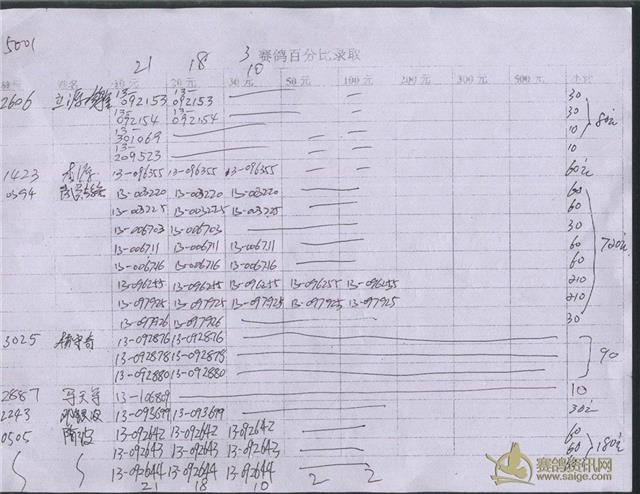 5001
21 18 3 赛鸽百分比录取
10
编号 姓名 10元 20元 30元 50元 100元 200元 300元 500元 小计
2606 13-092153 13-092153 — — 30
13-092154 13-092154 — — 30 80
13-301069 — — 10
13-209523 — — 10
1423 13-096355 13-096355 13-096355 — — 60
0394 13-003220 13-003220 13-003220 — 60
13-003225 13-003225 13-003225 — 60
13-006703 13-006703 — 30
13-006711 13-006711 13-006711 — 60 720
13-006716 13-006716 13-006716 — 60
13-096255 13-096255 13-096255 13-096255 13-096255 210
13-097925 13-097925 13-097925 13-097925 13-097925 210
13-097926 13-097926 — 30
3025 13-092876 13-092876 —
13-092878 13-092878 — 90
13-092880 13-092880 —
2887 13-106809 — 10
2243 13-093699 13-093699 — 30
0505 13-092642 13-092642 13-092642 — — 60
13-092643 13-092643 13-092643 — — 60 180
13-092644 13-092644 13-092644 — —
21 18 10 2 2
赛鸽资讯网
www.saige.com